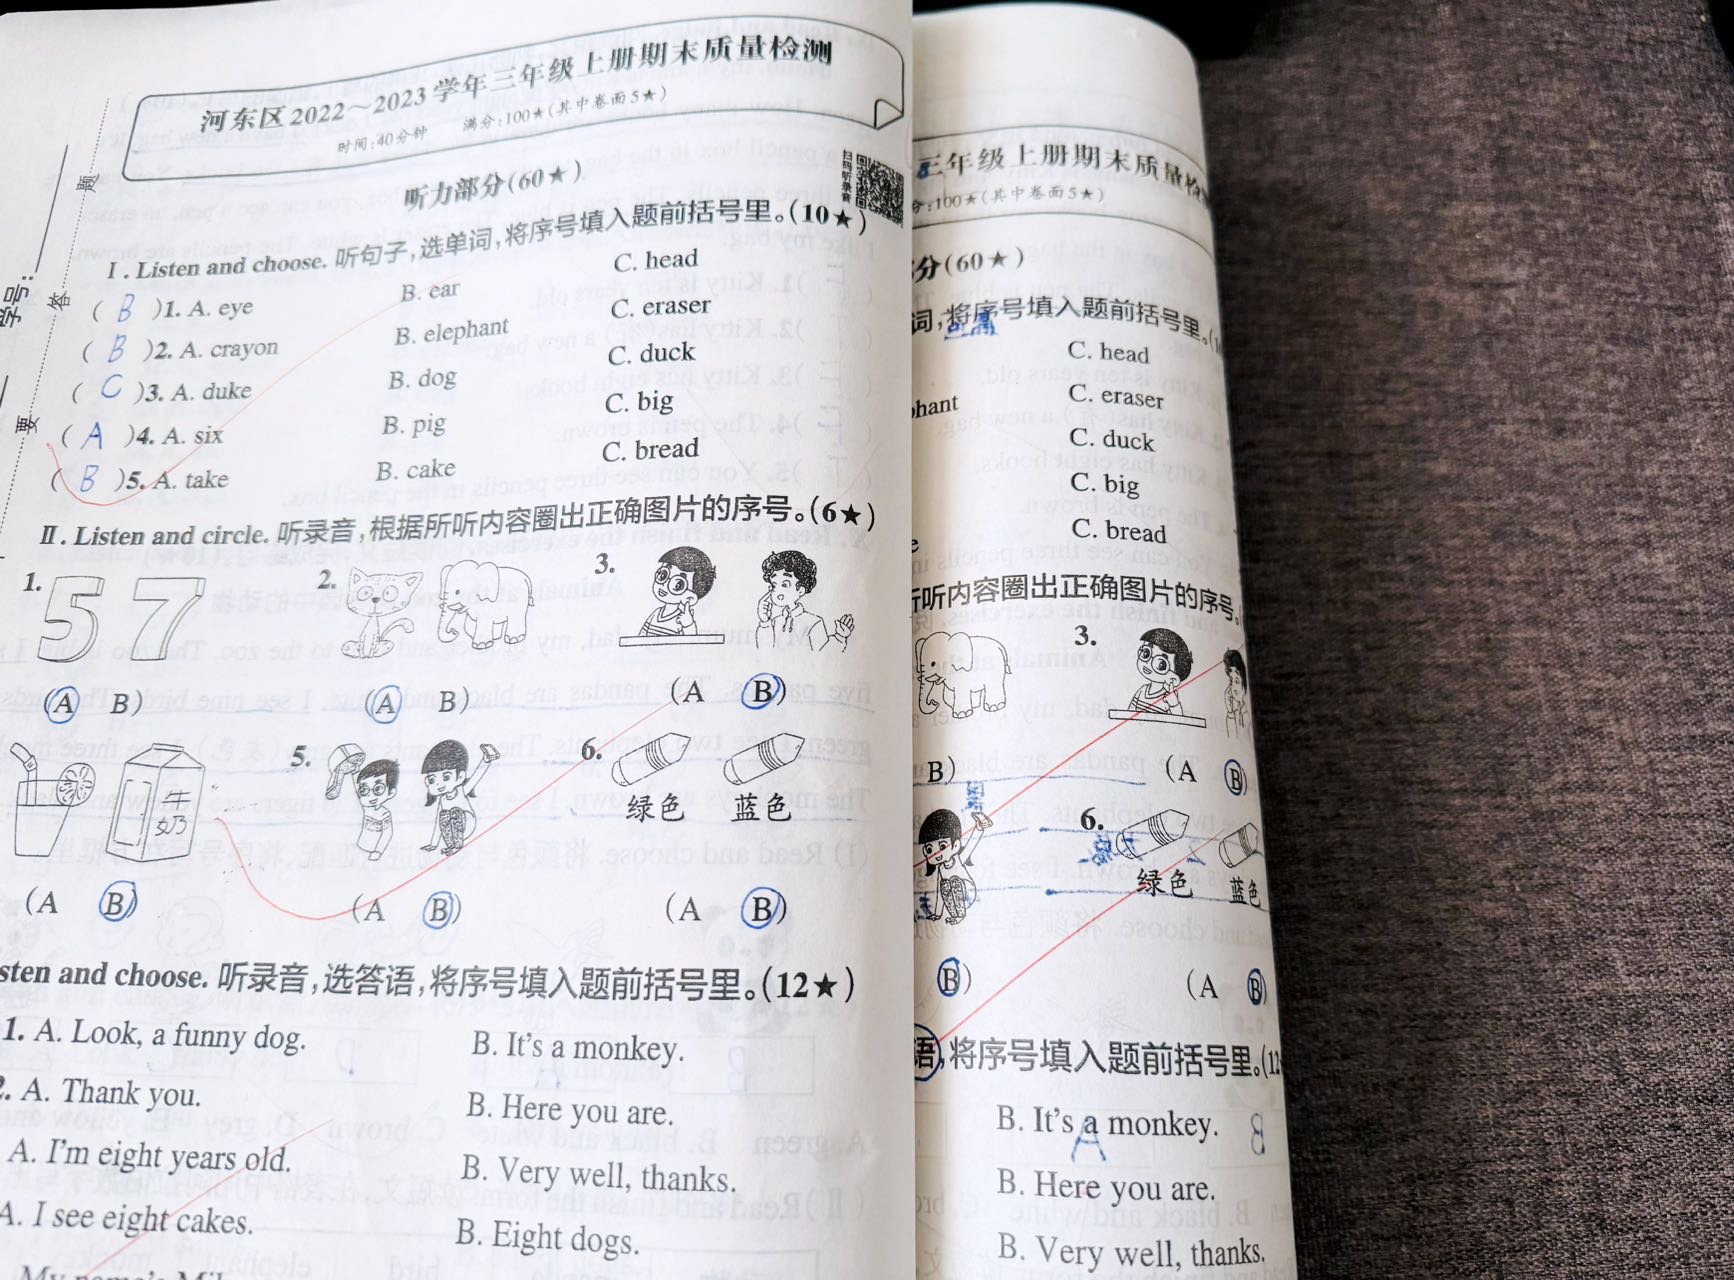 河东区2022～2023学年三年级上册期末质量检测
时间:40分钟 满分:100★(其中卷面5★)
扫码听录音
听力部分(60★)
Ⅰ. Listen and choose. 听句子,选单词,将序号填入题前括号里。(10★)
( B )1. A. eye B. ear C. head
( B )2. A. crayon B. elephant C. eraser
( C )3. A. duke B. dog C. duck
( A )4. A. six B. pig C. big
( B )5. A. take B. cake C. bread
Ⅱ. Listen and circle. 听录音,根据所听内容圈出正确图片的序号。(6★)
1. 5 7 2. 3.
(A B) (A B) (A B)
牛奶 5. 6. 绿色 蓝色
(A B) (A B) (A B)
sten and choose. 听录音,选答语,将序号填入题前括号里。(12★)
1. A. Look, a funny dog. B. It's a monkey.
2. A. Thank you. B. Here you are.
A. I'm eight years old. B. Very well, thanks.
A. I see eight cakes. B. Eight dogs.
学号:
题
答
要
三年级上册期末质量检
:100★(其中卷面5★)
分(60★)
词,将序号填入题前括号里。
C. head
phant C. eraser
C. duck
C. big
C. bread
听内容圈出正确图片的序号。
3.
B) (A B)
6.
绿色 蓝色
B) (A B)
语,将序号填入题前括号里。(12
B. It's a monkey.
B. Here you are.
B. Very well, thanks.